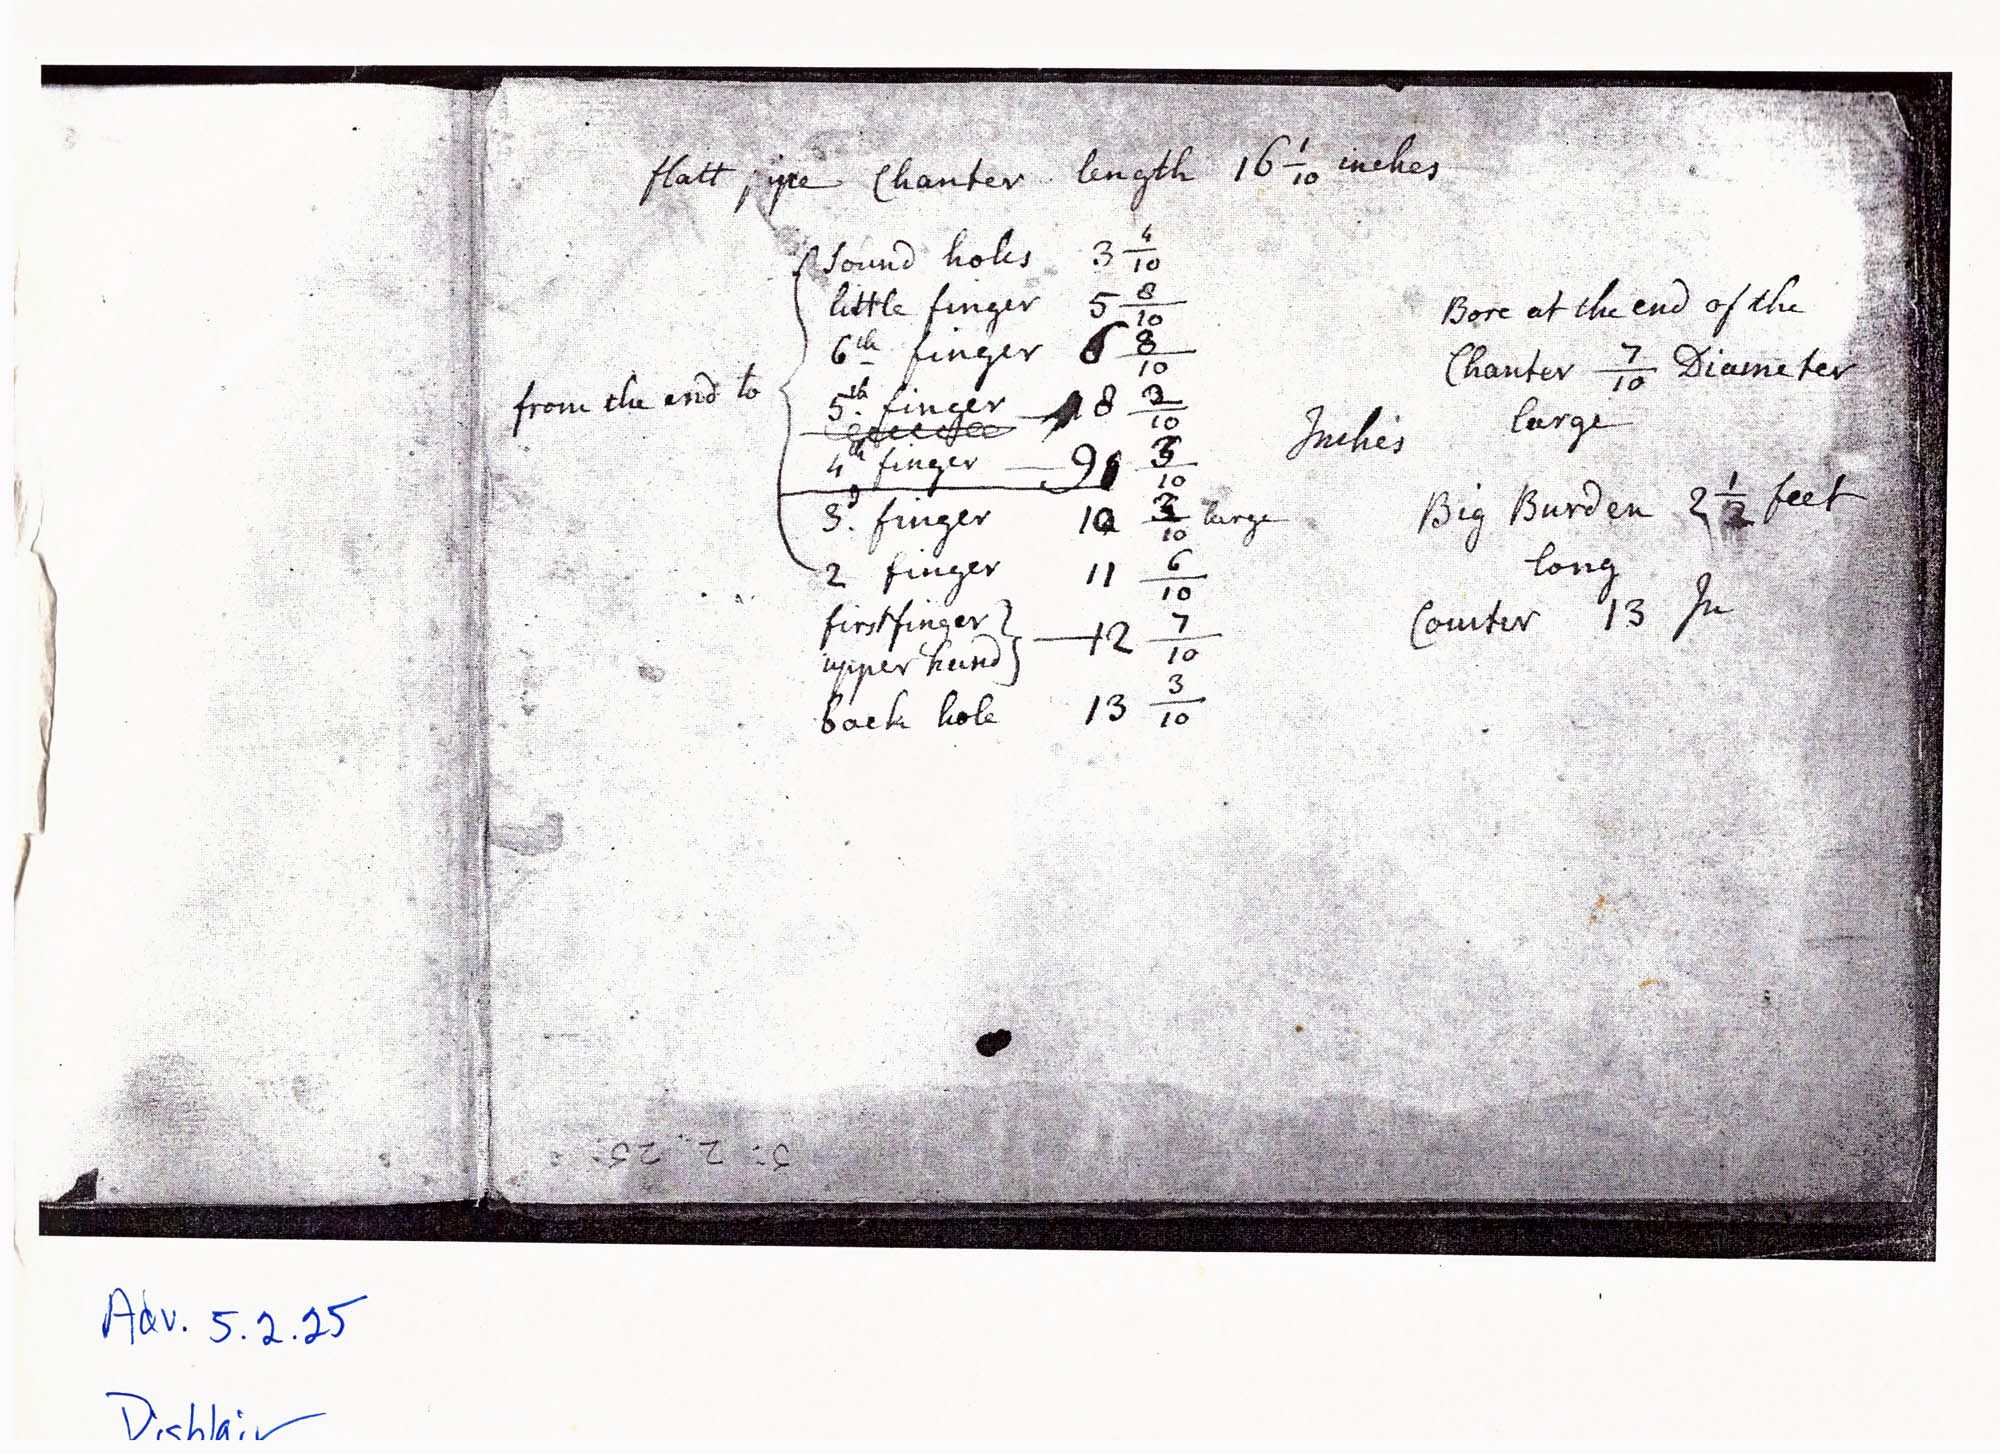 flatt pipe Chanter length 16 1/10 inches
Sound holes 3 4/10
little finger 5 8/10
6th finger 6 8/10
from the end to
5th finger 8 /10
4th finger 9 /10
3d finger 10 /10 large
2 finger 11 6/10
first finger
upper hand 12 7/10
back hole 13 3/10
Bore at the end of the
Chanter 7/10 Diameter
large
Inches
Big Burden 2 1/2 feet
long
Counter 13 In
5. 2. 25
Adv. 5.2.25